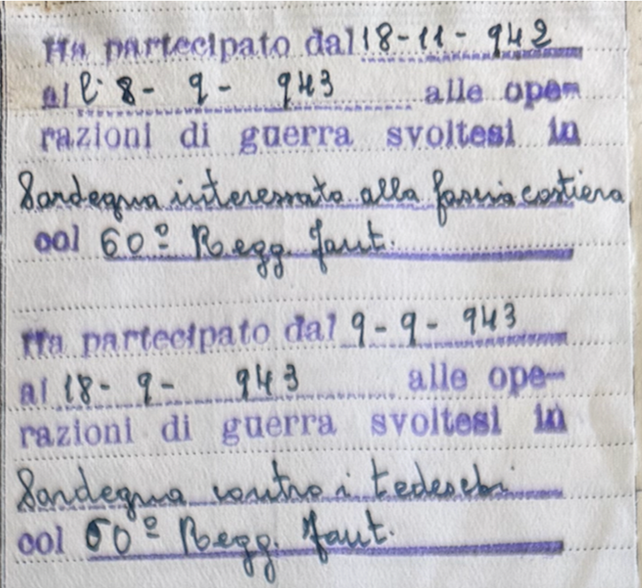 Ha partecipato dal 18-11-942
al l' 8-9-943 alle ope=
razioni di guerra svoltesi in
Sardegna interessata alla fascia costiera
col 60º Regg. Fant.
Ha partecipato dal 9-9-943
al 18-9-943 alle ope-
razioni di guerra svoltesi in
Sardegna contro i tedeschi
col 60º Regg. Fant.